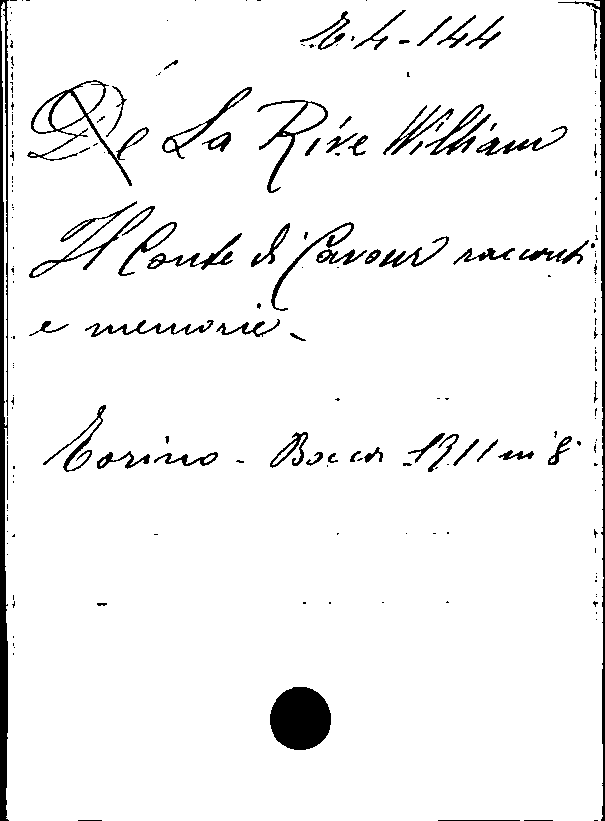 E. 4-144
De La Rive William
Il Conte di Cavour racconti
e memorie -
Torino - Bocca 1911 in 8°